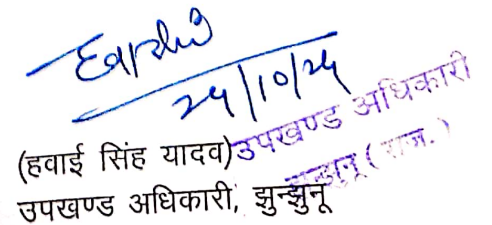 24/10/24
(हवाई सिंह यादव) उपखण्ड अधिकारी
उपखण्ड अधिकारी, झुन्झुनू
झुन्झुनू ( राज. )